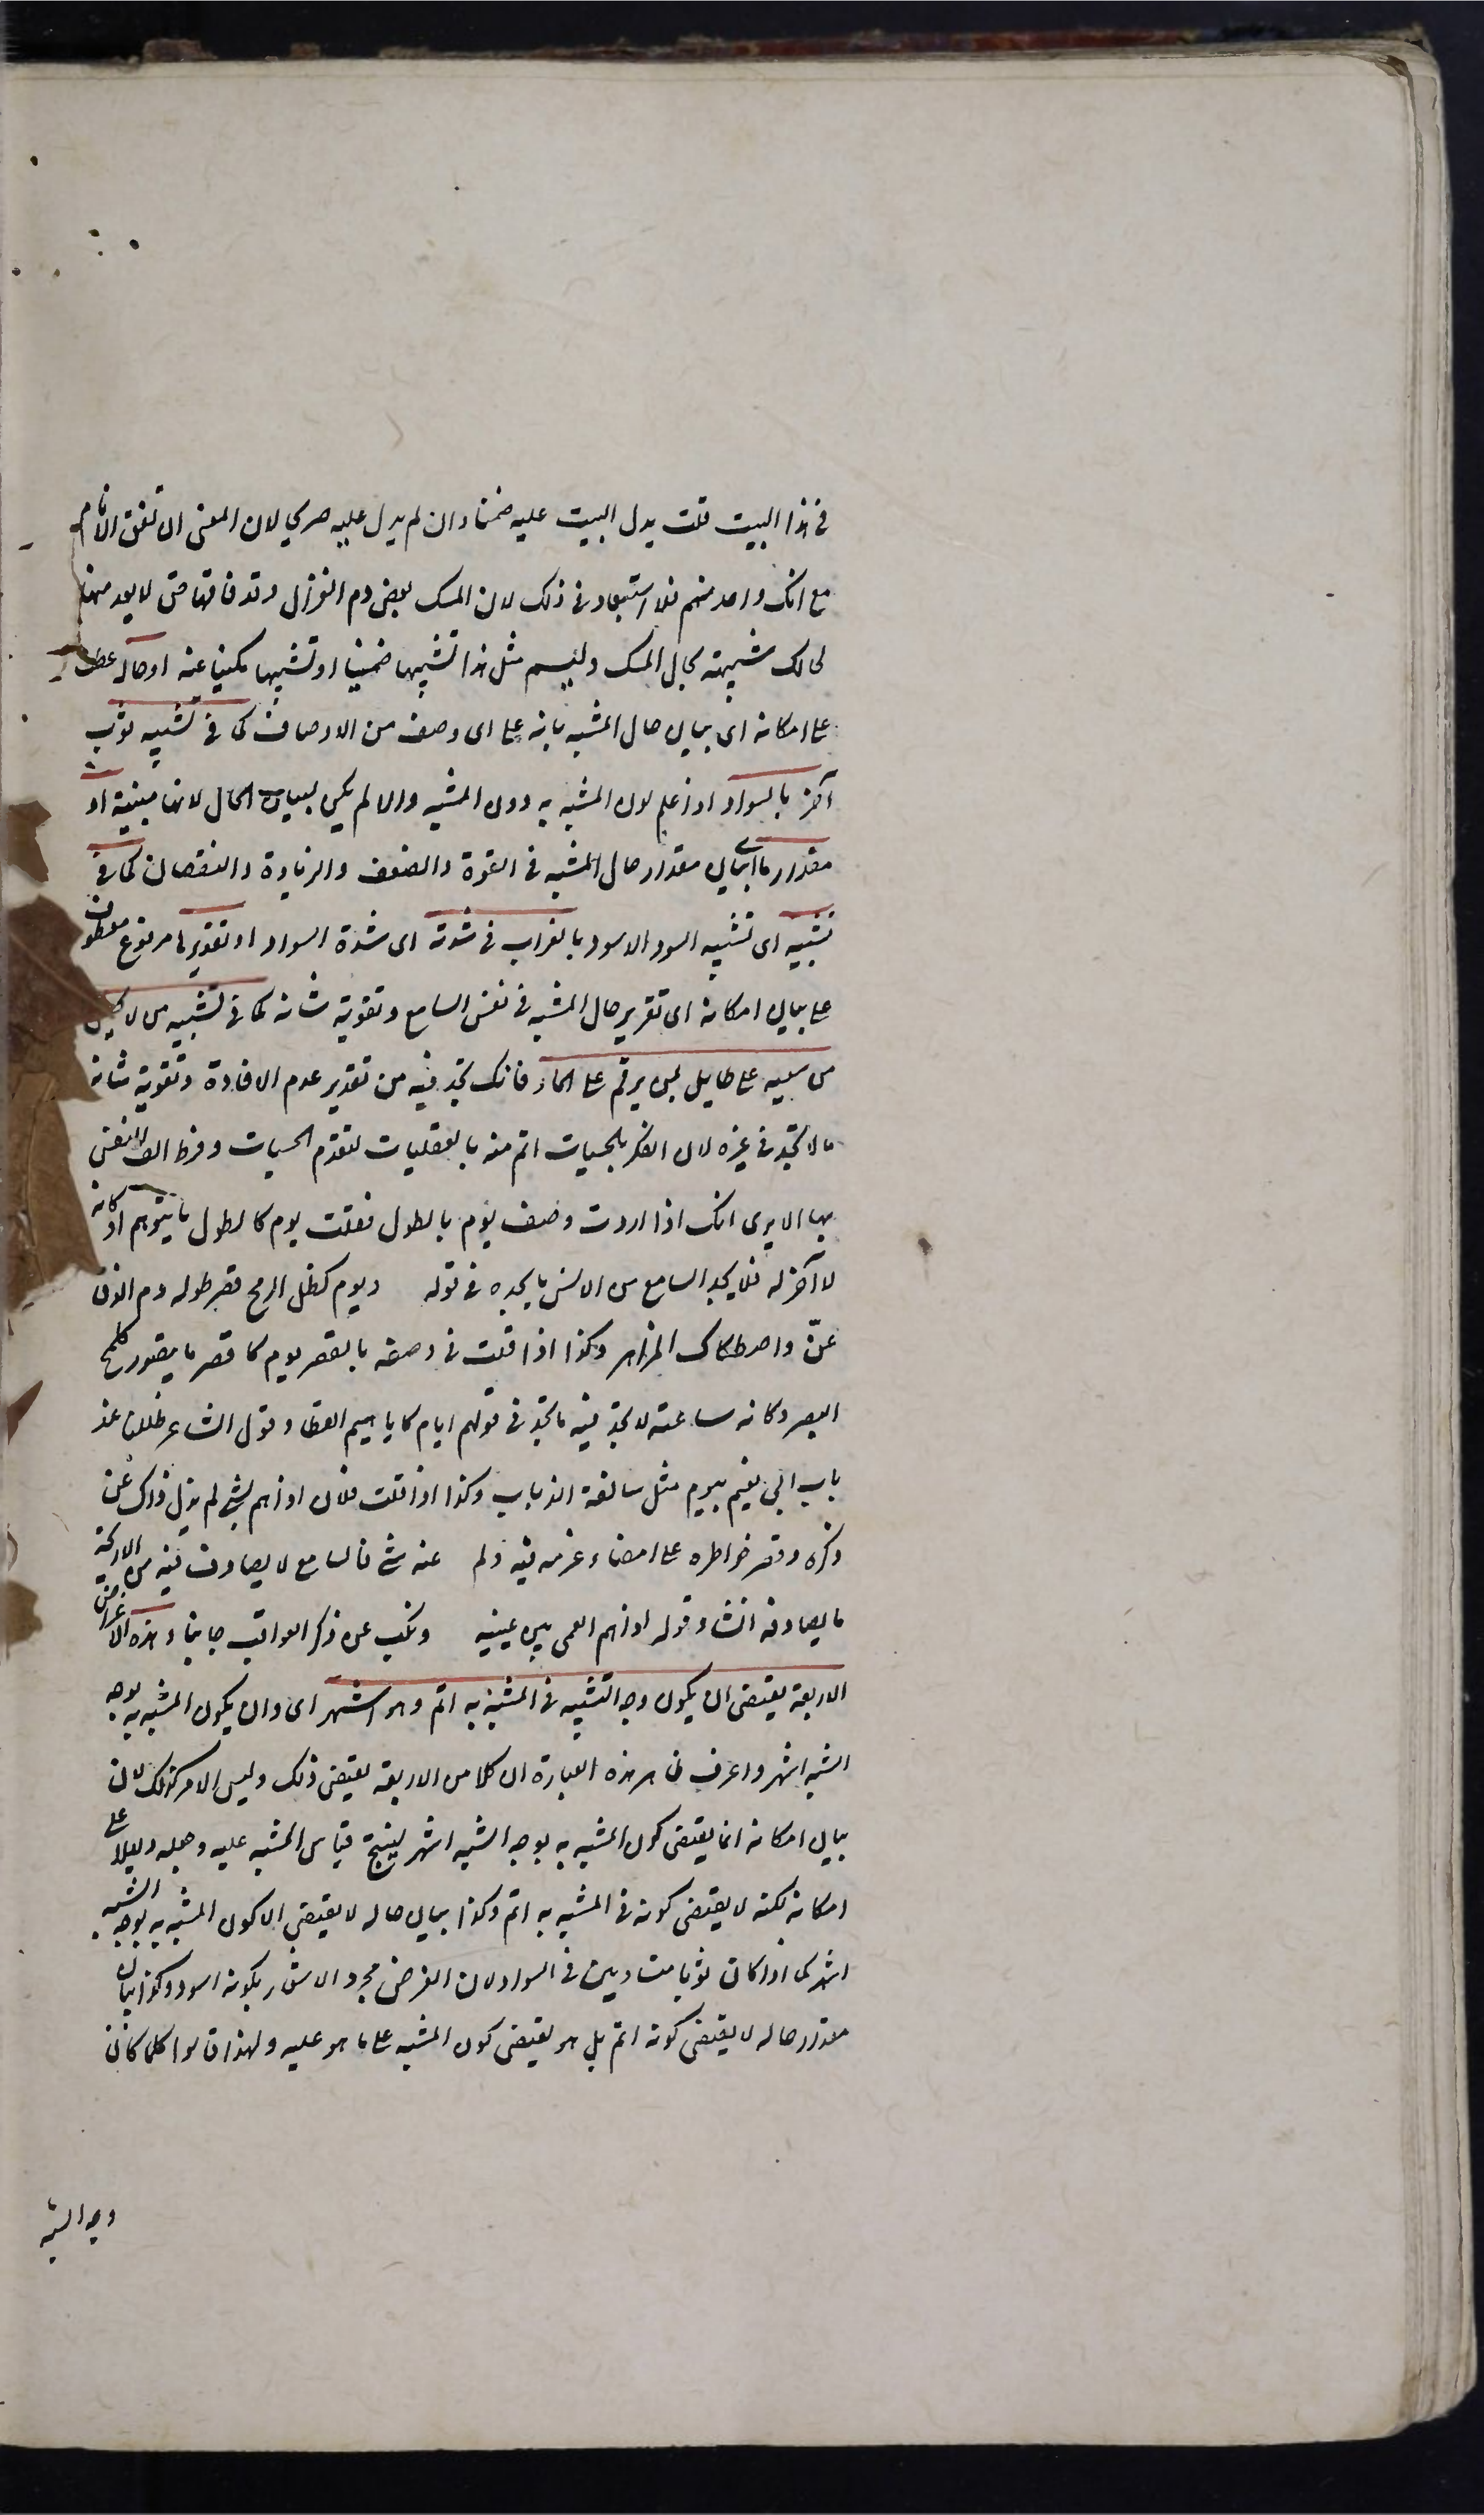 في هذا البيت قلت يدل البيت عليه ضمنا وان لم يدل عليه صريحا لان المعنى ان تفق الانام
مع انك واحد منهم فلا استبعاد في ذلك لان المسك بعض دم الغزال وقد فاقها حتى لا يعد منها
فحالك شبيهة بحال المسك وليسم مثل هذا تشبيها ضمنيا او تشبيها مكنيا عنه او حاله عطف
على امكانه اى بيان حال المشبه بانه على اى وصف من الاوصاف كما في تشبيه ثوب
بآخر بالسواد اذا علم لون المشبه به دون المشبه والا لم يكن لبيان الحال لانها مبينة او
مقدارها اى بيان مقدار حال المشبه في القوة والضعف والزيادة والنقصان كما في
تشبيه اى تشبيه السود الاسود بالغراب في شدته اى شدة السواد او تقريرها مرفوع معطوف
على بيان امكانه اى تقرير حال المشبه في نفس السامع وتقوية شانه كما في تشبيه من لا يحصل
من سعيه على طايل بمن يرقم على الماء فانك تجد فيه من تقرير عدم الافادة وتقوية شانه
ما لا تجد في غيره لان الفكر بالحسيات اتم منه بالعقليات لتقدم الحسيات وفرط الف النفس
بها الا يرى انك اذا اردت وصف يوم بالطول فقلت يوم كاطول ما يتوهم او كانه
لا آخر له فلا يجد السامع من الانس ما يجده في قوله ويوم كظل الرمح قصر طوله دم الزق
عنّا واصطكاك المزاهر وكذا اذا قلت في وصفه بالقصر يوم كاقصر ما يتصور كلمح
البصر وكانه ساعته لا تجد فيه ما تجد في قولهم ايام كاباهيم القطا وقول الشاعر ظللنا عند
باب ابي نعيم بيوم مثل سالفة الذباب وكذا اذا قلت فلان اذا هم بشئ لم يزل ذاك عن
ذكره وقصر خواطره على امضاء عزمه فيه ولم عنه شئ فالسامع لا يصادف فيه من الاريحية
ما يصادفه انشاد قوله اذا هم القى بين عينيه ونكب عن ذكر العواقب جانبا وهذه الاغراض
الاربعة يقتضى ان يكون وجه التشبيه في المشبه به اتم وهو اشهر اى وان يكون المشبه به بوجه
الشبه اشهر واعرف ظاهر هذه العبارة ان كلا من الاربعة يقتضى ذلك وليس الامر كذلك لان
بيان امكانه انما يقتضى كون المشبه به بوجه الشبه اشهر لينتج قياس المشبه عليه وجعله دليلا على
امكانه لكنه لا يقتضى كونه في المشبه به اتم وكذا بيان حاله لا يقتضى الا كون المشبه به بوجه الشبه
اشهر كما اذا كان ثوبا متساويين في السواد لان الغرض مجرد الاشعار بكونه اسود وكذا بيان
مقدار حاله لا يقتضى كونه اتم بل هو يقتضى كون المشبه على ما هو عليه ولهذا قالوا كلما كان
وجه الشبه